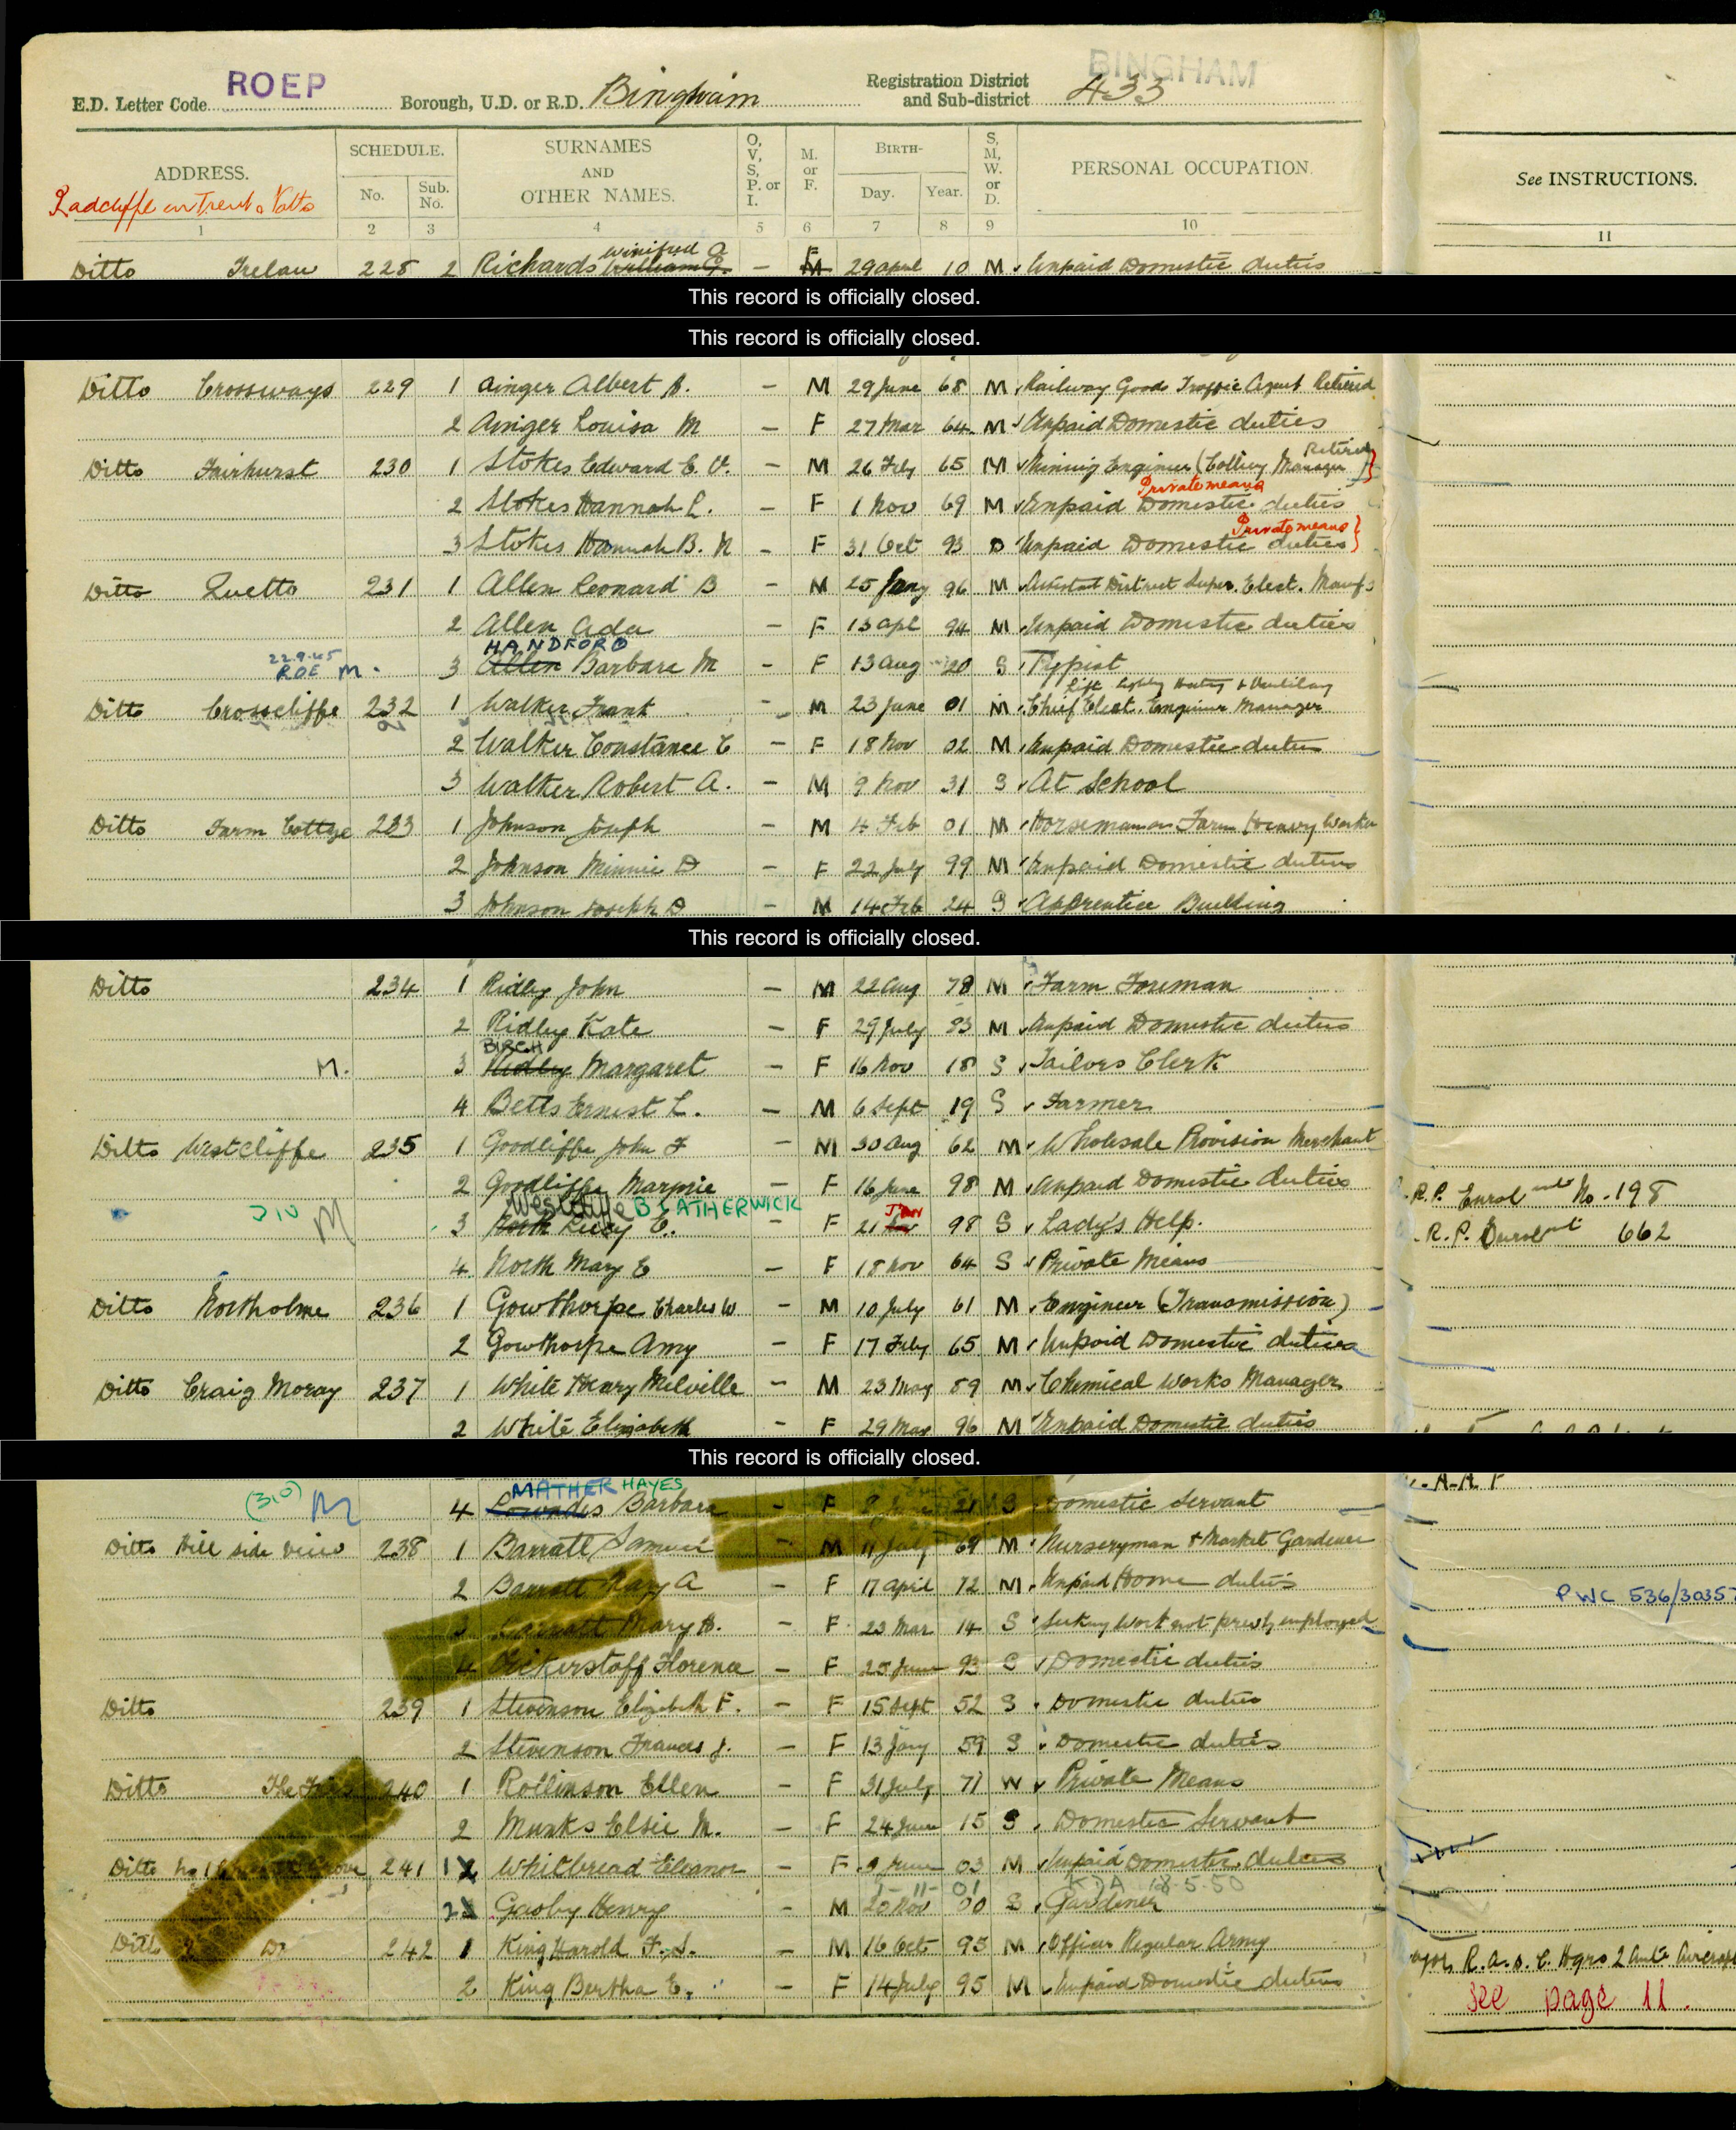 BINGHAM
E.D. Letter Code ROEP Borough, U.D. or R.D. Bingham Registration District and Sub-district 433
ADDRESS. SCHEDULE. No. Sub. No. SURNAMES AND OTHER NAMES. O, V, S, P. or I. M. or F. BIRTH- Day. Year. S, M, W. or D. PERSONAL OCCUPATION. See INSTRUCTIONS.
Radcliffe on Trent Notts
1 2 3 4 5 6 7 8 9 10 11
Winifred G
Ditto Trelau 228 2 Richards William G. - F M 29 april 10 M Unpaid Domestic duties
This record is officially closed.
This record is officially closed.
Ditto Crossways 229 1 Ainger Albert - M 29 June 68 M Railway Goods Traffic Agent Retired
2 Ainger Louisa M - F 27 Mar 64 M Unpaid Domestic duties
Ditto Fairhurst 230 1 Stokes Edward E. V. - M 26 Feby 65 M Mining Engineer (Colliery Manager) Retired
Private means
2 Stokes Hannah L. - F 1 Nov 69 M Unpaid Domestic duties
Private means
3 Stokes Hannah B. N - F 31 Oct 93 D Unpaid Domestic duties
Ditto Quetto 231 1 Allen Leonard B - M 25 Jany 96 M Assistant District Super. Elect. Manfs
2 Allen Ada - F 13 apl 94 M Unpaid Domestic duties
HANDFORD
22.9.45 ROE M. 3 Allen Barbara M - F 13 Aug 20 S Typist
Ditto Crosscliffe 232 1 Walker Frank - M 23 June 01 M Chief Elect. Engineer Manager
2 Walker Constance E - F 18 Nov 02 M Unpaid Domestic duties
3 Walker Robert A. - M 9 Nov 31 S At School
Ditto Farm Cottge 233 1 Johnson Joseph - M 4 Feb 01 M Horseman on Farm Heavy Worker
2 Johnson Minnie D - F 22 July 99 M Unpaid Domestic duties
3 Johnson Joseph D - M 14 Feb 24 S Apprentice Building
This record is officially closed.
Ditto 234 1 Ridley John - M 22 Aug 78 M Farm Foreman
2 Ridley Kate - F 29 July 83 M Unpaid Domestic duties
BIRCH
M. 3 Ridley Margaret - F 16 Nov 18 S Tailors Clerk
4 Betts Ernest L. - M 6 Sept 19 S Farmer
Ditto Westcliffe 235 1 Goodliffe John F - M 30 Aug 62 M Wholesale Provision Merchant
2 Goodliffe Marjorie - F 16 June 98 M Unpaid Domestic duties R.P. Enrolment No. 198
Westcliffe BLATHERWICK JAN
310 M 3 North Lucy E. - F 21 98 S Lady's Help. R.P. Enrolment 662
4 North Mary E - F 18 Nov 64 S Private Means
Ditto Northolme 236 1 Gowthorpe Charles W - M 10 July 61 M Engineer (Transmission)
2 Gowthorpe Amy - F 17 Feby 65 M Unpaid Domestic duties
Ditto Craig Moray 237 1 White Henry Melville - M 23 May 89 M Chemical Works Manager
2 White Elizabeth - F 29 Mar 96 M Unpaid Domestic duties
This record is officially closed.
MATHER HAYES
(310) M 4 Barbara - F 21 S Domestic Servant
Ditto Hill side view 238 1 Barratt Samuel - M 11 July 69 M Nurseryman & Market Gardener
2 Barratt Mary A - F 17 April 72 M Unpaid Home duties PWC 536/30357
3 Barratt Mary H. - F 23 Mar 14 S Seeking Work not prevly employed
4 Bickerstaff Florence - F 25 June 93 S Domestic duties
Ditto 239 1 Stevenson Elizabeth F. - F 15 Sept 52 S Domestic duties
2 Stevenson Frances J. - F 13 Jany 59 S Domestic duties
Ditto The Firs 240 1 Rollinson Ellen - F 31 July 71 W Private Means
2 Munks Elsie M. - F 24 June 15 S Domestic Servant
Ditto 241 1 Whitbread Eleanor - F 9 June 03 M Unpaid Domestic duties
1-11-01 18-5-50
2 Gasby Henry - M 20 Nov 00 S Gardener
Ditto Do 242 1 King Harold F. S. - M 16 Oct 95 M Officer Regular Army R.A.S.C. Hqrs 2 Anti Aircraft
2 King Bertha E. - F 14 July 95 M Unpaid Domestic duties
See page 11.